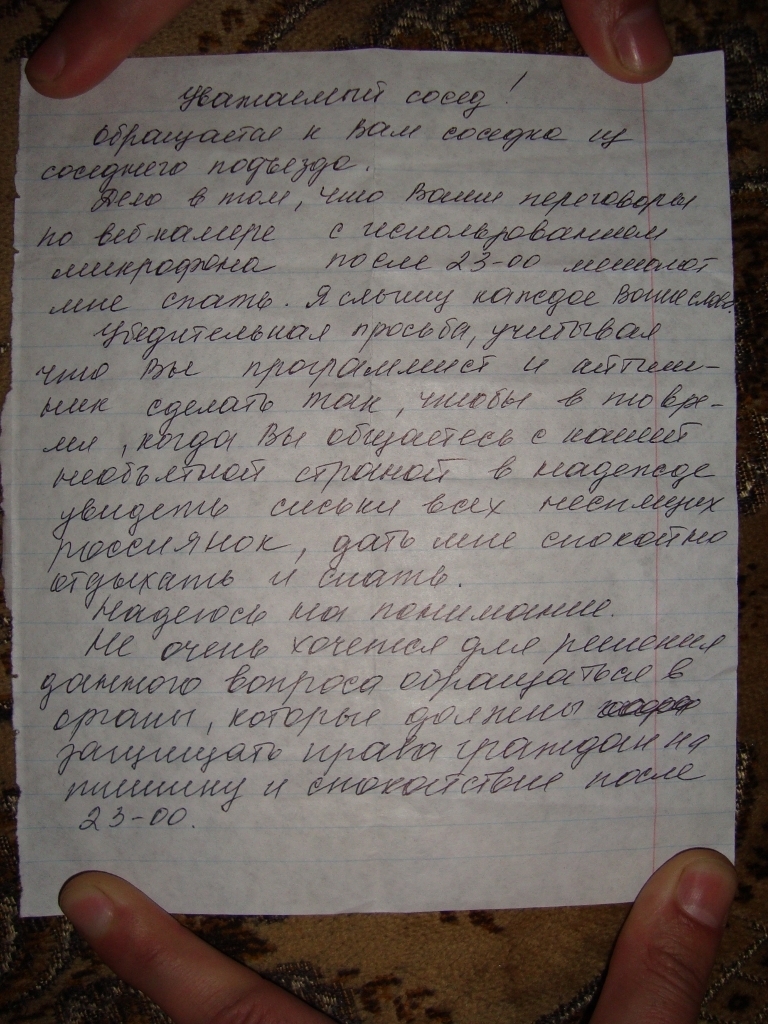 Уважаемый сосед!
Обращается к Вам соседка из
соседнего подъезда.
Дело в том, что Ваши переговоры
по веб-камере с использованием
микрофона после 23-00 мешают
мне спать. Я слышу каждое Ваше слово.
Убедительная просьба, учитывая
что Вы программист и айтиш-
ник сделать так, чтобы в то вре-
мя, когда Вы общаетесь с нашей
необъятной страной в надежде
увидеть сиськи всех неспящих
россиянок, дать мне спокойно
отдыхать и спать.
Надеюсь на понимание.
Не очень хочется для решения
данного вопроса обращаться в
органы, которые должны
защищать права граждан на
тишину и спокойствие после
23-00.